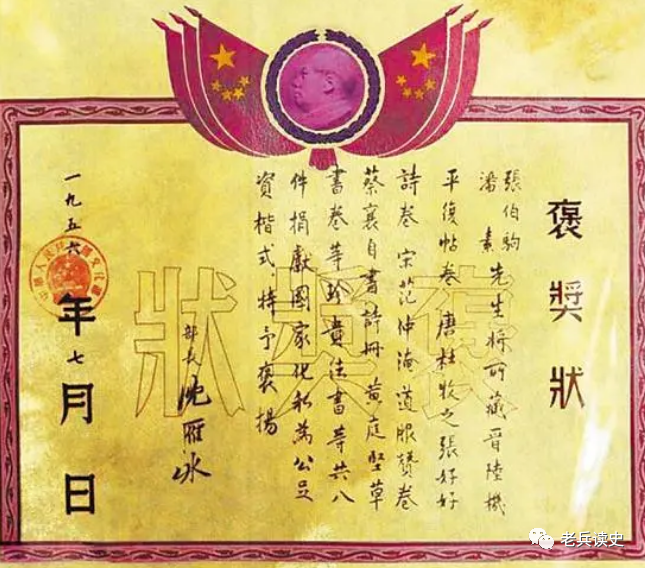 褒獎狀
張伯駒
潘素先生將所藏晉陸機
平復帖卷 唐杜牧之張好好
詩卷 宋范仲淹道服贊卷
蔡襄自書詩册 黃庭堅草
書卷等珍貴法書等共八
件捐獻國家化私為公足
資楷式,特予褒揚
部長 沈雁冰
一九五六年七月 日
褒獎狀
老兵读史